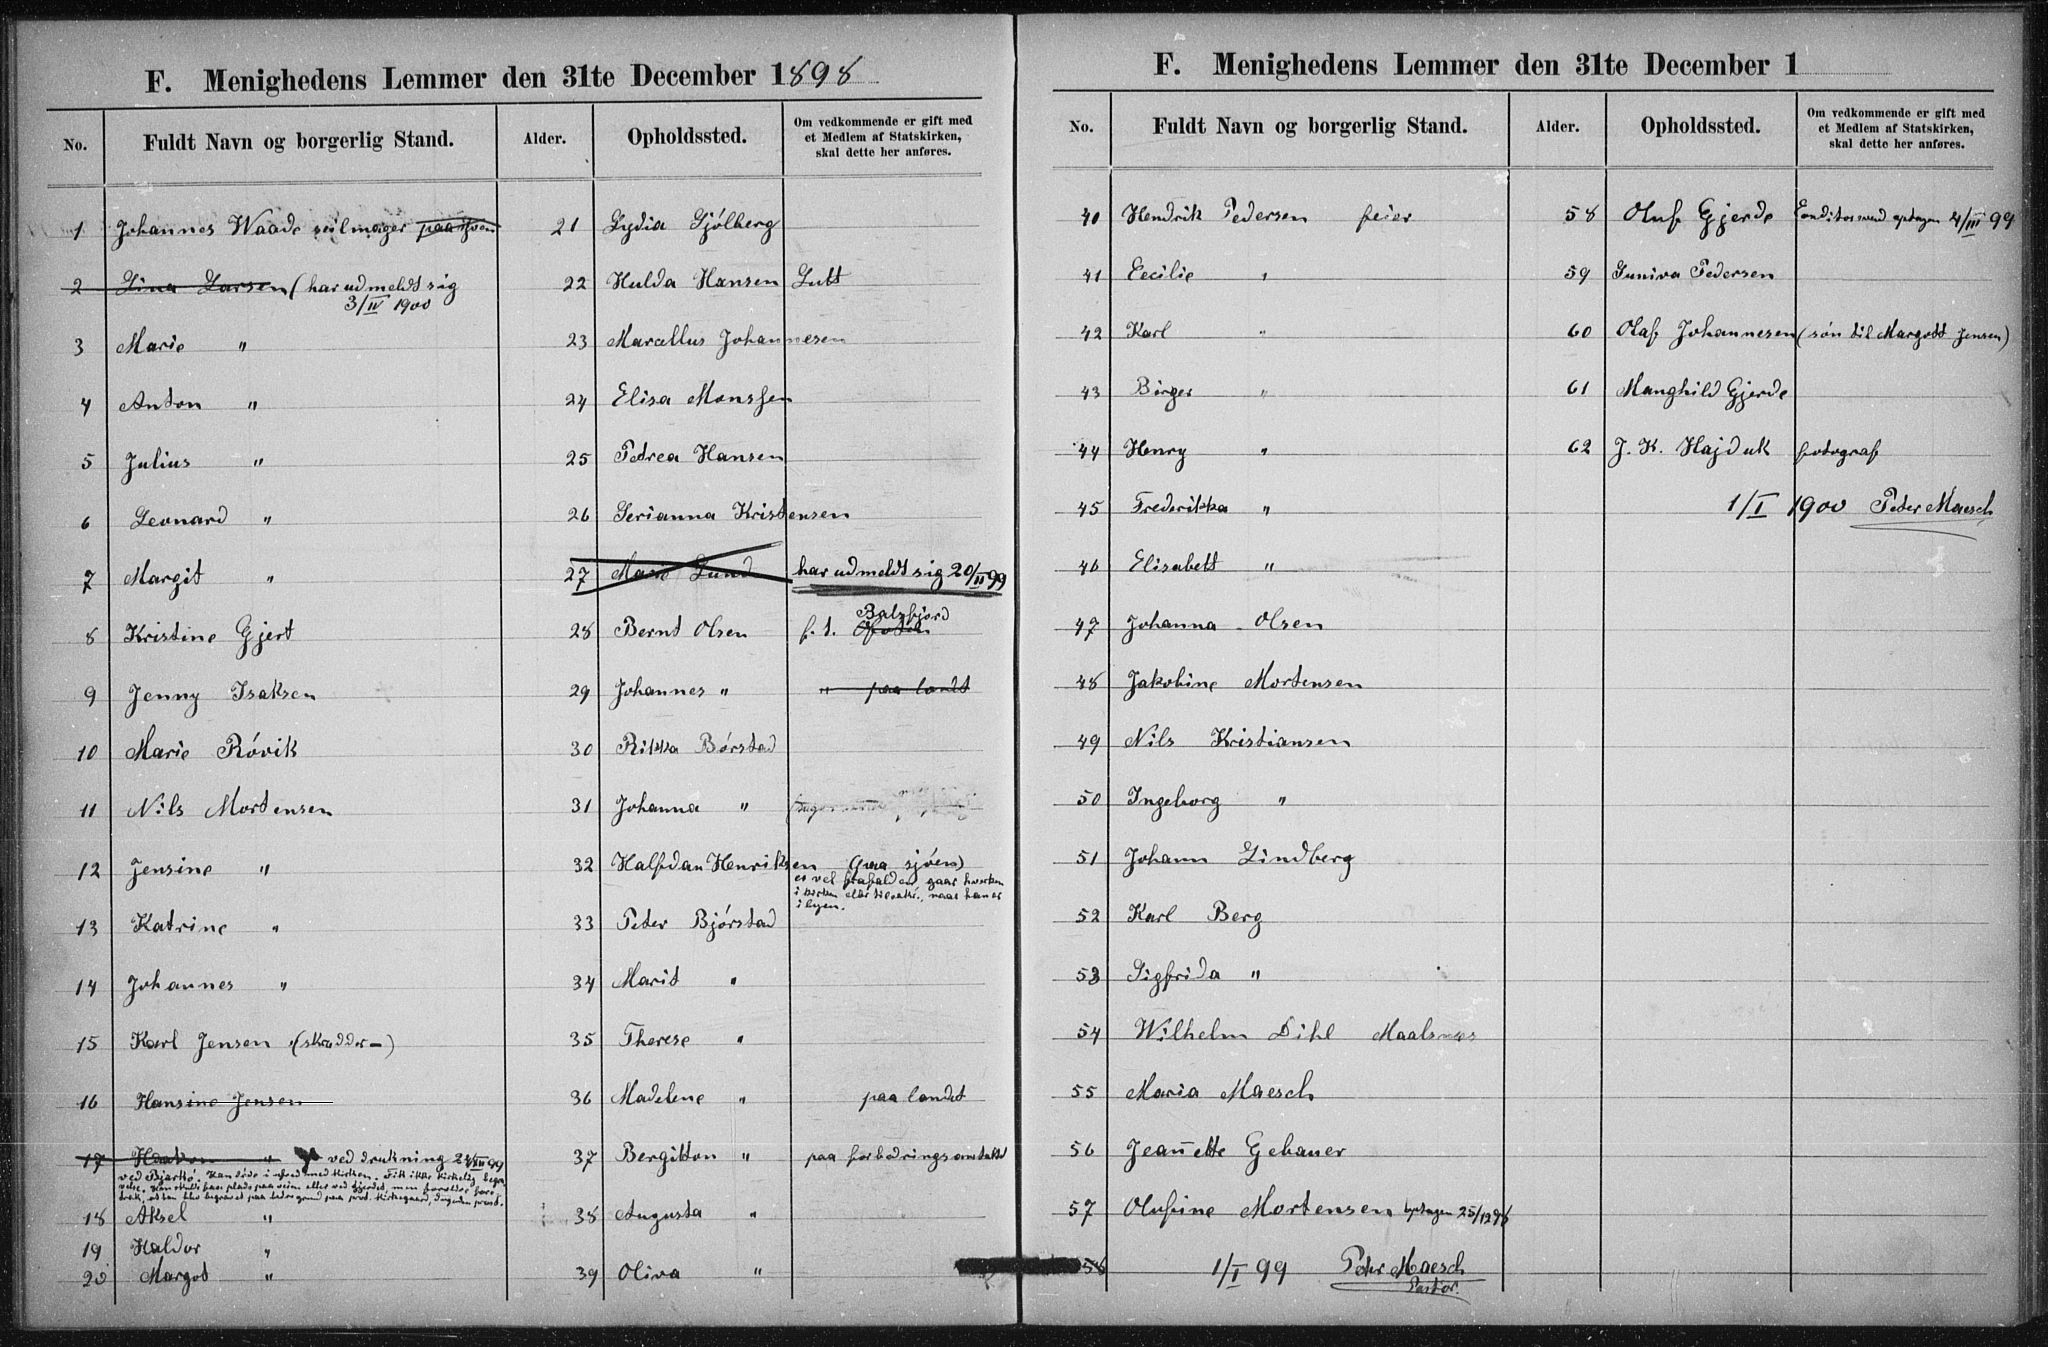 F. Menighedens Lemmer den 31te December 1898
No. Fuldt Navn og borgerlig Stand. Alder. Opholdssted. Om vedkommende er gift med et Medlem af Statskirken, skal dette her anføres.
1 Johannes Waade seilmager
2 Lina Larsen (har udmeldt sig
3/IV 1900
3 Marie "
4 Anton "
5 Julius "
6 Leonard "
7 Margit "
8 Kristine Gjert
9 Jenny Isaksen
10 Marie Róvik
11 Nils Mortensen
12 Jensine "
13 Katrine "
14 Johannes "
15 Karl Jensen (skrædder-)
16 Hansine Jensen
17 Haakon " ved drukning
18 Aksel "
19 Haldor "
20 Margot "
21 Lydia Sjólberg
22 Hulda Hansen
23 Marcellus Johannesen
24 Elisa Monssen
25 Petrea Hansen
26 Serianna Kristensen
27 Marie Lund har udmeldt sig 20/II 99
28 Bernt Olsen f. t. Balsfjord
29 Johannes " " paa landt
30 Rikka Bórstad
31 Johanna "
32 Halfdan Henriksen (paa sjóen)
er vel frafalden, gaar hverken
i byen.
33 Peter Bjórstad
34 Marit "
35 Therese "
36 Madelene " paa landet
37 Bergitton " paa forbedringsanstalt
38 Augusta "
39 Oliva "
F. Menighedens Lemmer den 31te December 1
No. Fuldt Navn og borgerlig Stand. Alder. Opholdssted. Om vedkommende er gift med et Medlem af Statskirken, skal dette her anføres.
40 Hendrik Pedersen feier
41 Cecilie "
42 Karl "
43 Birger "
44 Henry "
45 Frederikka "
46 Elisabett "
47 Johanna Olsen
48 Jakobine Mortensen
49 Nils Kristiansen
50 Ingeborg "
51 Johann Lindberg
52 Karl Berg
53 Sigfrida "
54 Wilhelm Dihl Maalsnes
55 Maria Maesch
56 Jeannette Gebauer
57 Olufine Mortensen optagen 25/12 98
58 1/I 99 Peter Maesch
Pastor.
58 Oluf Gjerde optagen 4/III 99
59 Guniva Pedersen
60 Olaf Johannesen (søn til Margott Jensen)
61 Manghild Gjerde
62 J. K. Hajduk fotograf
1/I 1900 Peter Maesch